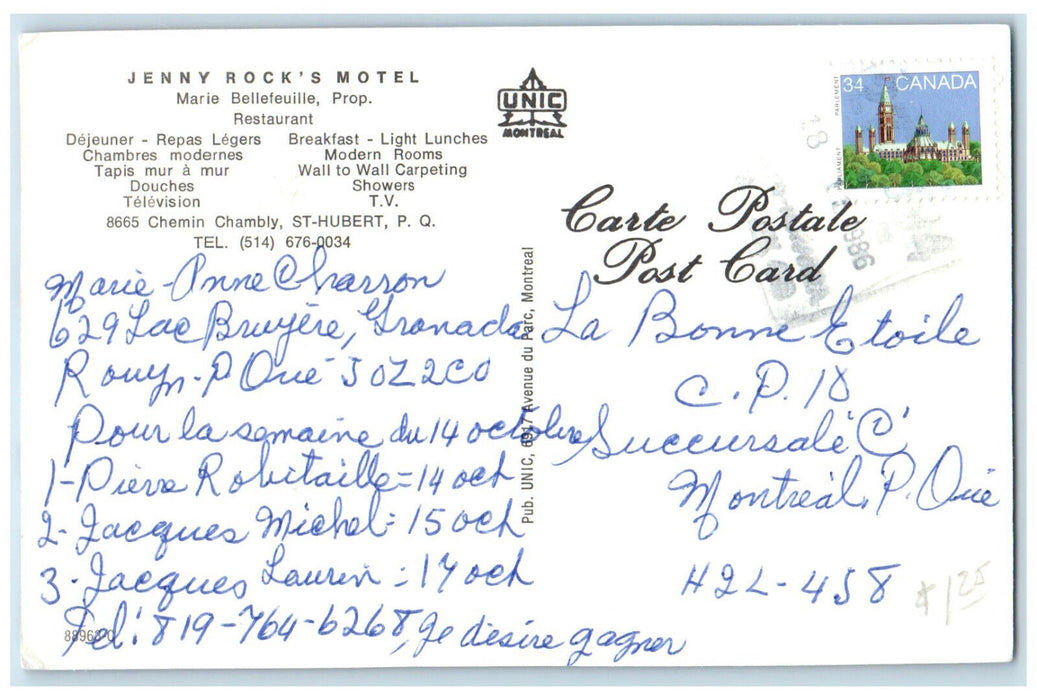 JENNY ROCK'S MOTEL
Marie Bellefeuille, Prop.
Restaurant
Déjeuner - Repas Légers Breakfast - Light Lunches
Chambres modernes Modern Rooms
Tapis mur à mur Wall to Wall Carpeting
Douches Showers
Télévision T.V.
8665 Chemin Chambly, ST-HUBERT, P. Q.
TEL. (514) 676-0034
UNIC
MONTREAL
34 CANADA
PARLEMENT
PARLIAMENT
18
1986
Carte Postale
Post Card
Marie-Anne Charron
629 Lac Bruyère, Granada
Rouyn-P Qué J0Z2C0
Pour la semaine du 14 octobre
1-Pierre Robitaille=14 och
2-Jacques Michel=15 och
3-Jacques Laurin=17 och
Tel: 819-764-6268, je désire gagner
88963-C
Pub. UNIC, 6917 Avenue du Parc, Montreal
La Bonne Etoile
C.P. 18
Succursale "C"
Montréal, P. Qué
H2L-4S8
$1.25